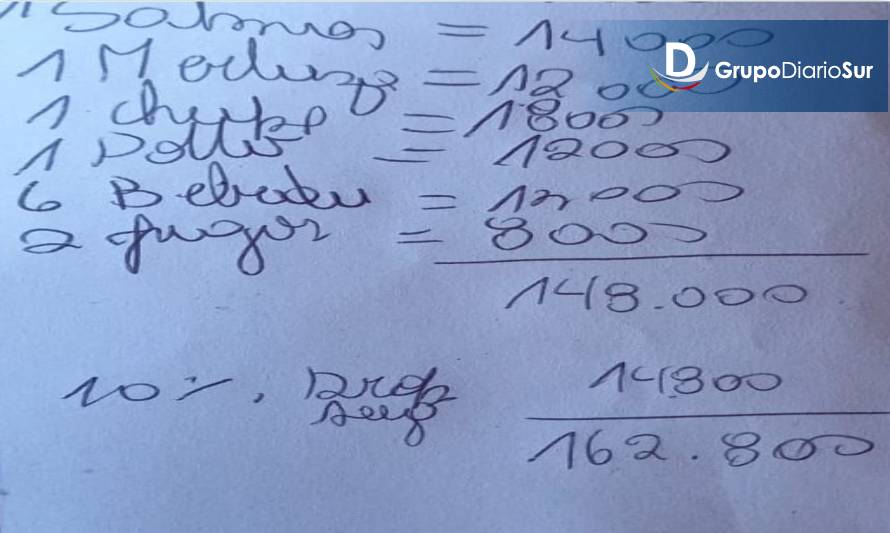 1 Salmos = 14000
1 Merluza = 12000
1 Chupe = 18000
1 Pollo = 12000
6 Bebidas = 12000
2 Jugos = 8000
148.000
10%. Prop 14800
162.800
GrupoDiarioSur